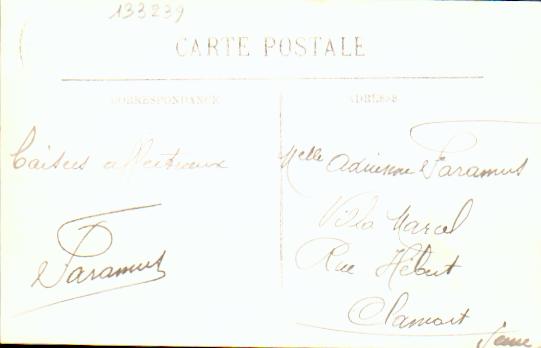 133239
CARTE POSTALE
CORRESPONDANCE
ADRESSE
Baisers affectueux
Paramus
Melle Adrienne Paramus
Villa Marcel
Rue Hébert
Clamart
Seine